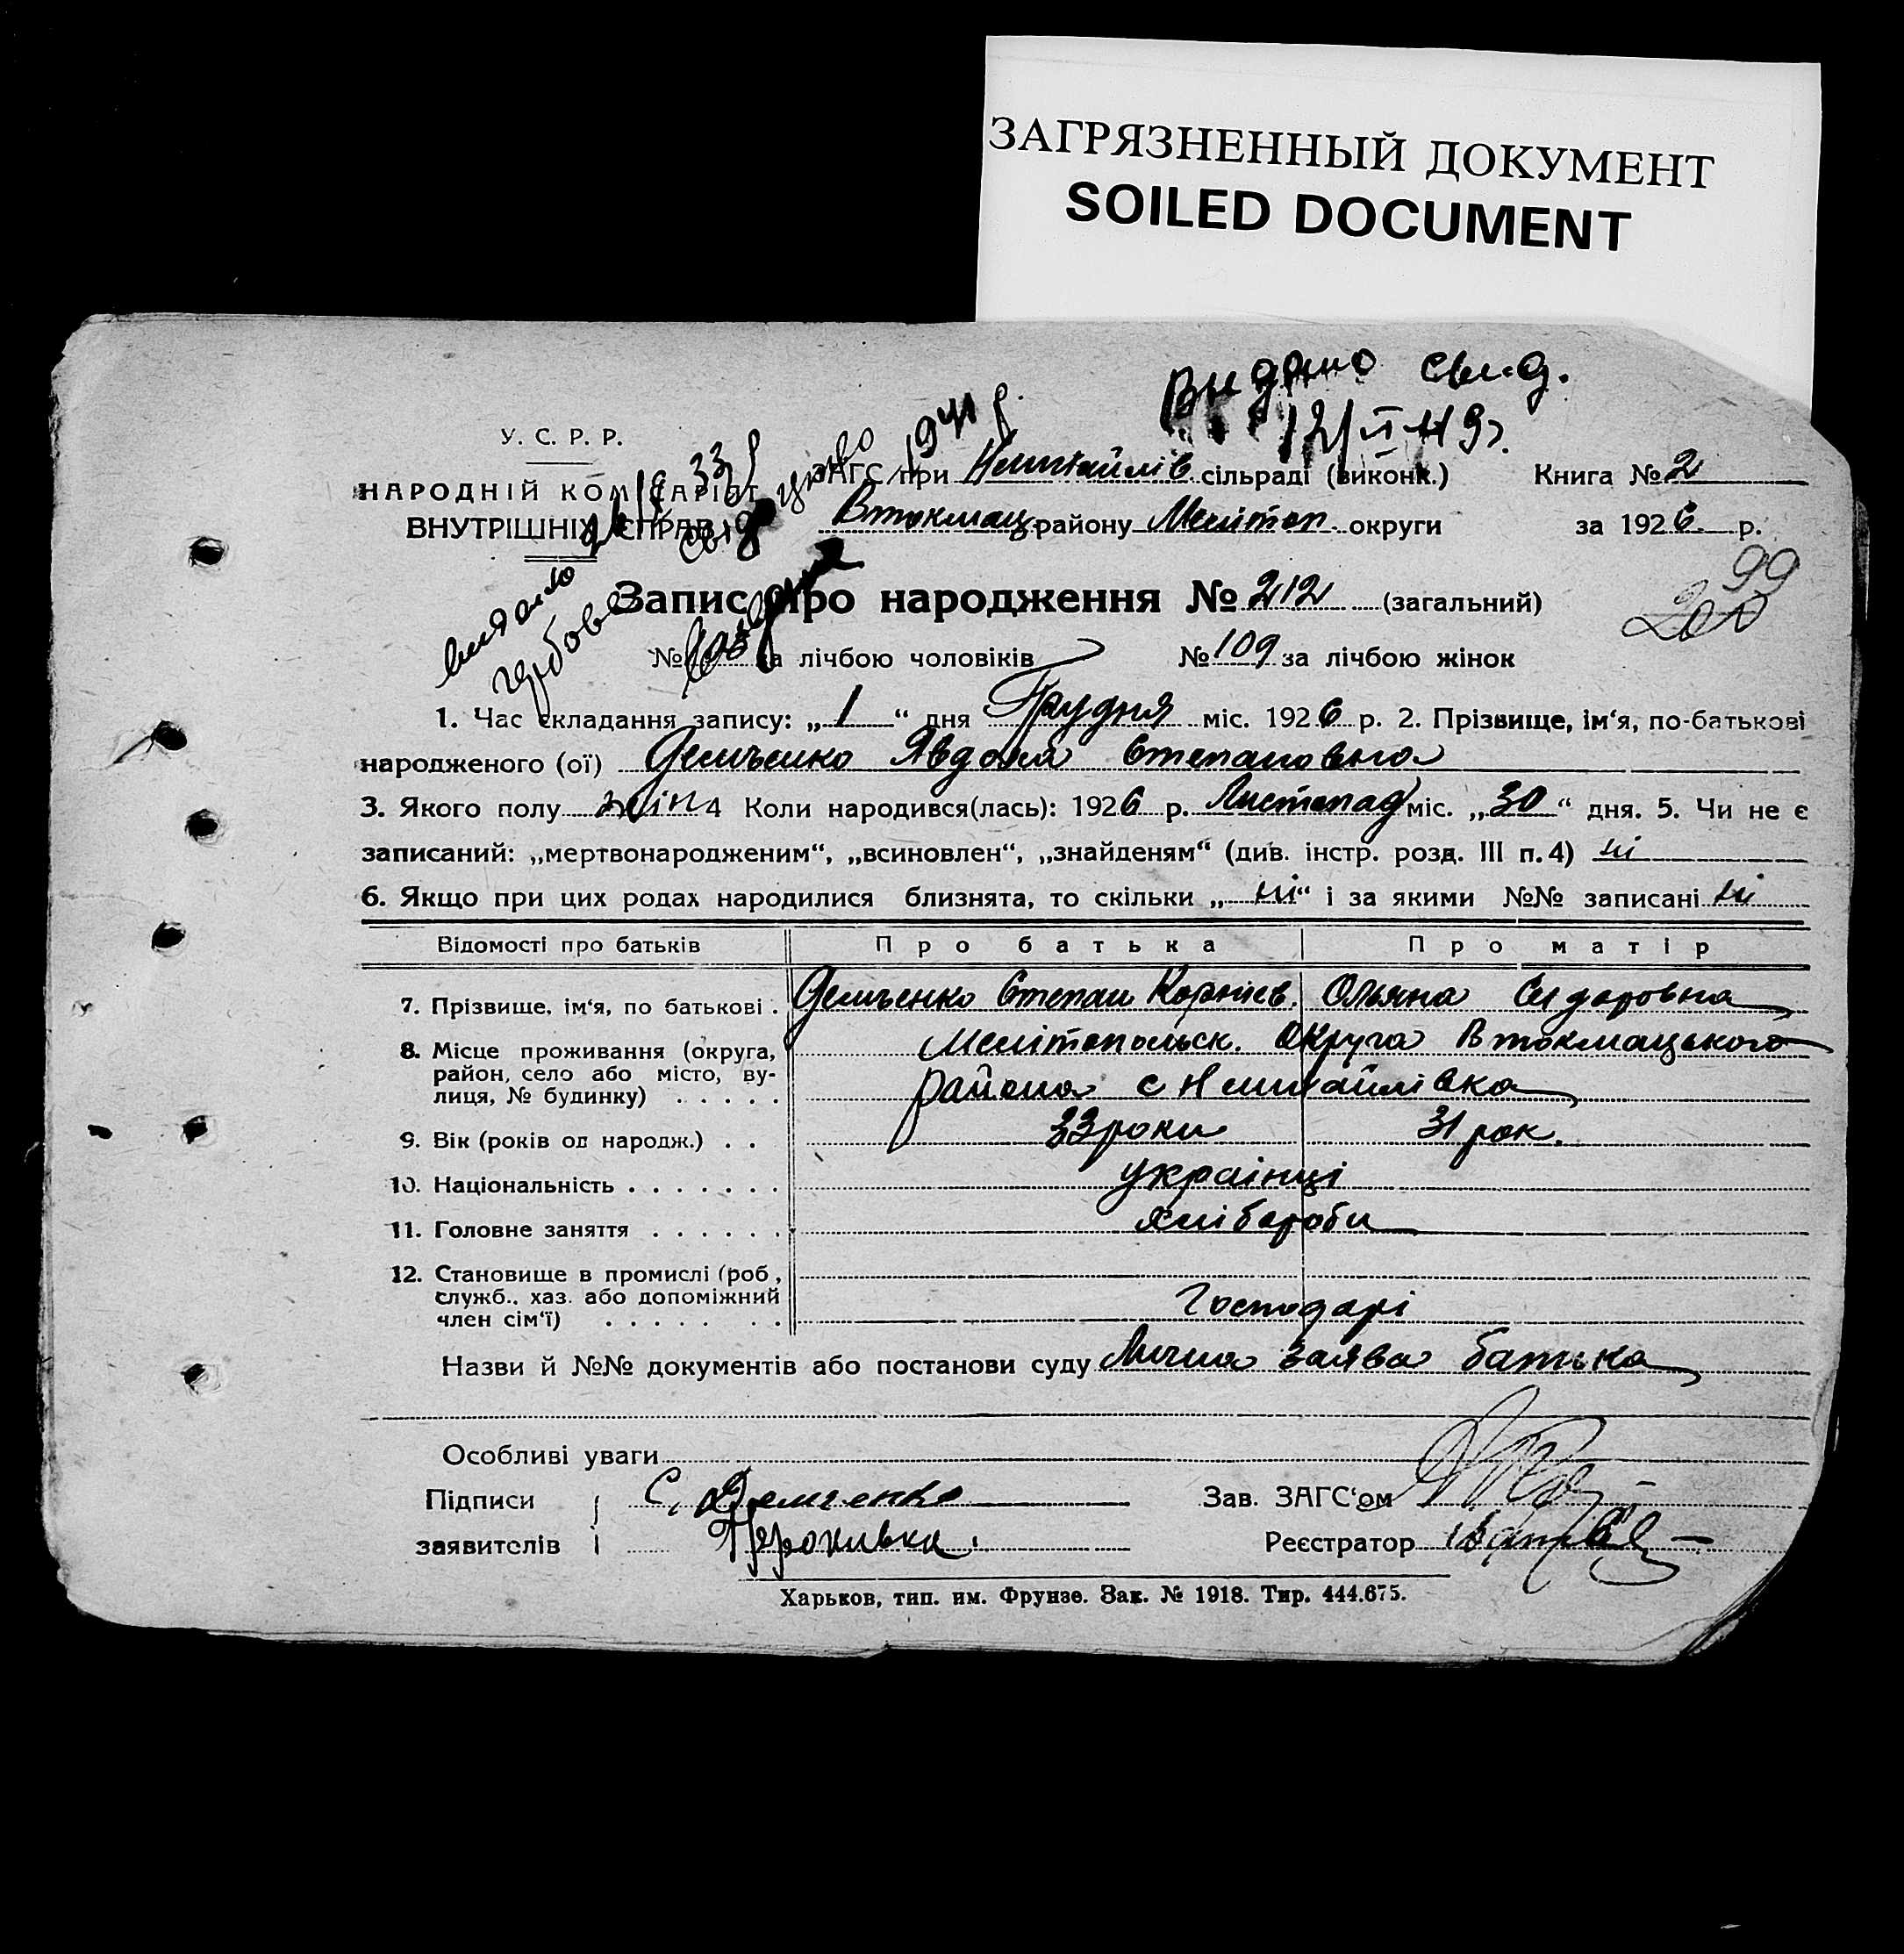 ЗАГРЯЗНЕННЫЙ ДОКУМЕНТ
SOILED DOCUMENT
Видано свид.
1941 р.
У. С. Р. Р.
НАРОДНІЙ КОМІСАРІЯТ
ВНУТРІШНІХ СПРАВ
ЗАГС при сільраді (виконк.) Книга № 2
Втокмац. району Меліт оп. округи за 1926 р.
99
200
Запис про народження № 212 (загальний)
№ за лічбою чоловіків № 109 за лічбою жінок
1. Час складання запису: „ 1 “ дня Грудня міс. 1926 р. 2. Прізвище, ім‘я, по-батькові
народженого (ої) Демъенко Явдокя Степановна
3. Якого полу жін 4 Коли народився(лась): 1926 р. Листопад міс. „ 30 “ дня. 5. Чи не є
записаний: „мертвонародженим“, „всиновлен“, „знайденям“ (див. інстр. розд. III п. 4) ні
6. Якщо при цих родах народилися близнята, то скільки „ ні “ і за якими №№ записані ні
Відомості про батьків Про батька Про матір
7. Прізвище, ім‘я, по батькові . Демъенко Степан Корнієв. Ольяна Сидоровна
8. Місце проживання (округа, Мелітопольск. округа Втокмацького
район, село або місто, вулиця, № будинку) . . . . . района с
9. Вік (років од народж.) . . 33 роки 31 рок.
10. Національність . . . . . . . украінці
11. Головне заняття . . . . . . хлібороби
12. Становище в промислі (роб.,
служб., хаз. або допоміжний
член сім‘ї) . . . . . . . Господарі
Назви й №№ документів або постанови суду Лична заява батька
Особливі уваги
Підписи С. Демченко Зав. ЗАГС‘ом
заявителів Реєстратор
Харьков, тип. им. Фрунзе. Зак. № 1918. Тир. 444.675.